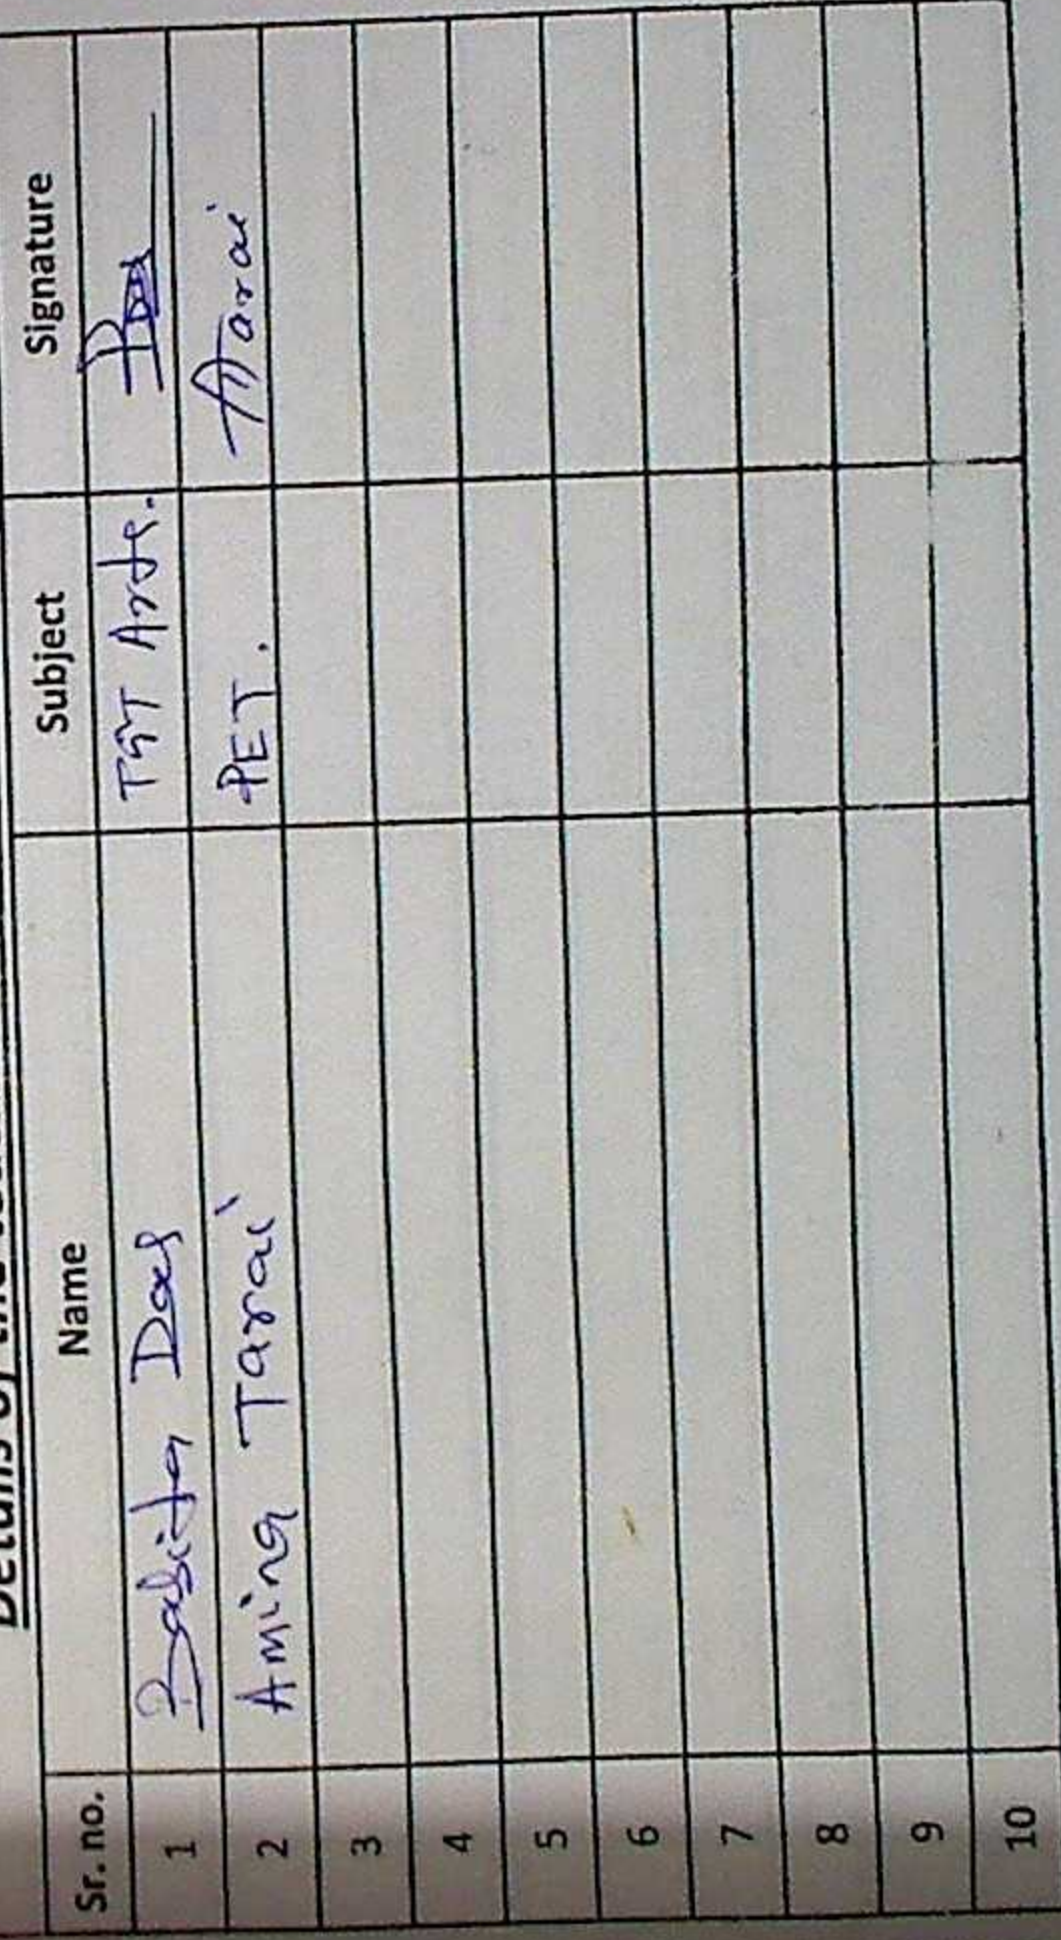 Details of the
Sr. no. Name Subject Signature
1 Babita Das TGT Arts.
2 Amina Tarai PET. ATarai
3
4
5
6
7
8
9
10